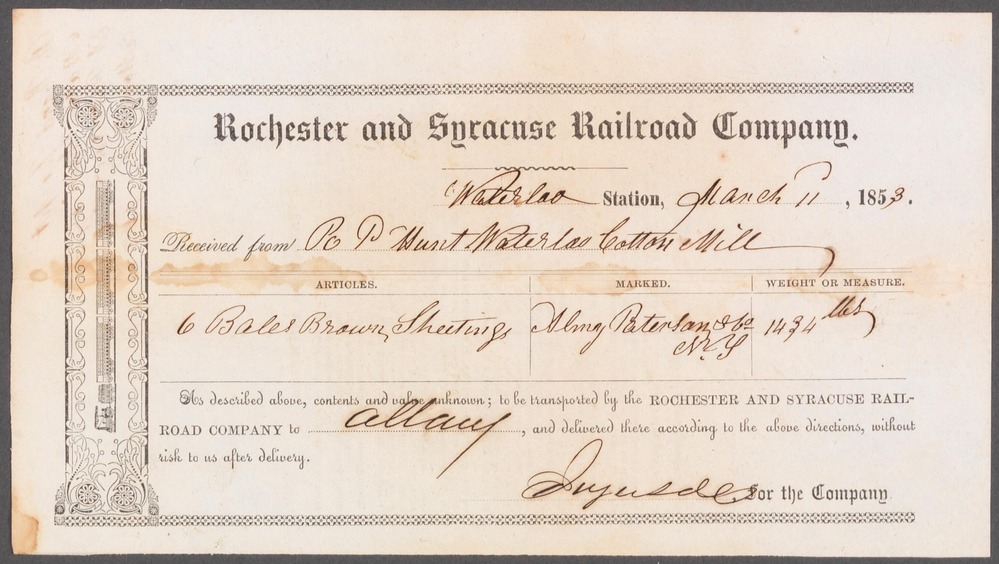 Rochester and Syracuse Railroad Company.
Waterloo Station, March 11, 1853.
Received from R P Hunt Waterloo Cotton Mill
ARTICLES. MARKED. WEIGHT OR MEASURE.
6 Bales Brown Sheetings Almy Paterson & Co 1434 lbs
N.Y
As described above, contents and value unknown; to be transported by the ROCHESTER AND SYRACUSE RAIL-
ROAD COMPANY to albany, and delivered there according to the above directions, without
risk to us after delivery.
For the Company